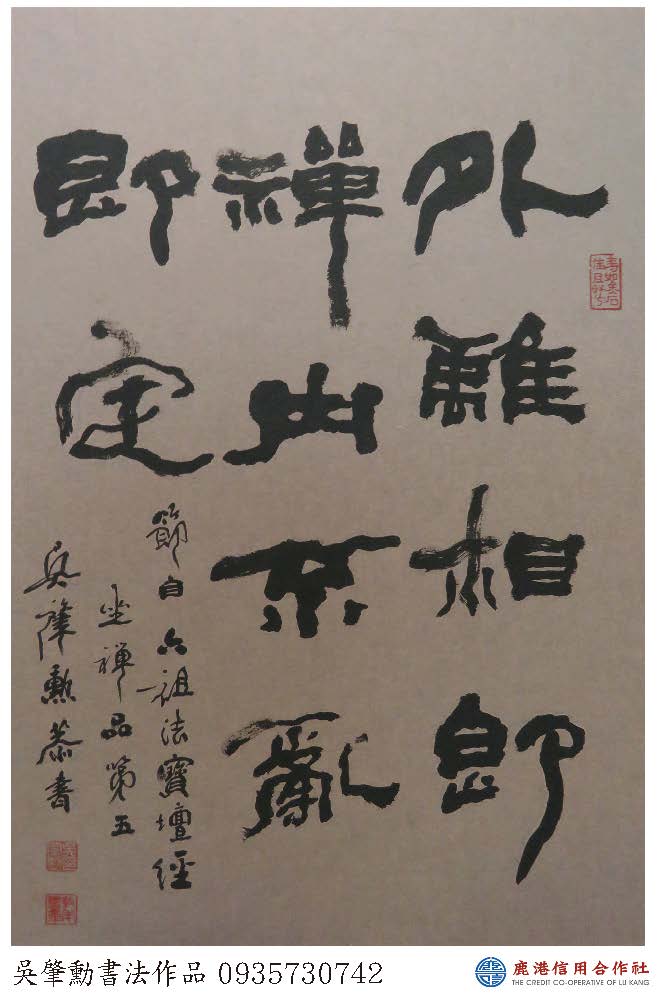 外離相即
禪內不亂
即定
節自六祖法寶壇經
坐禪品第五
吳肇勳恭書
壽如金石
佳且好兮
吳肇勳書法作品 0935730742
鹿港信用合作社
THE CREDIT CO-OPERATIVE OF LU KANG